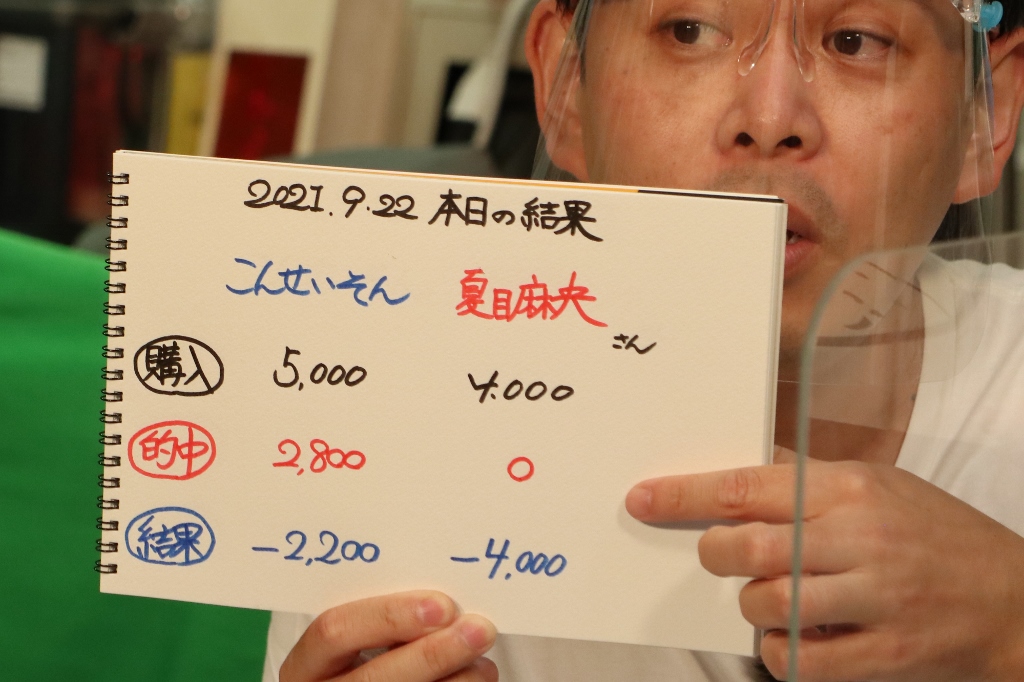 2021.9.22 本日の結果
こんせいそん 夏目麻央さん
購入 5,000 4.000
的中 2,800 0
結果 -2,200 -4,000